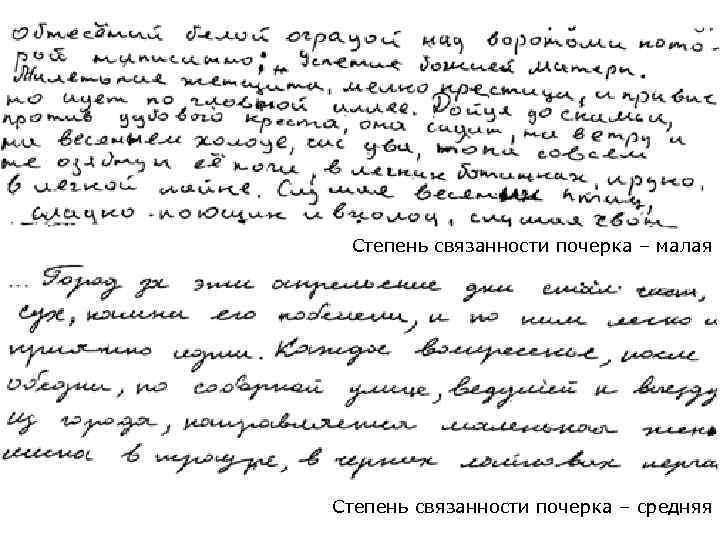 обнесённый белой оградой над воротами кото-
рой написано; „Успение божией матери.
Миленькие женщина, мелко крестица, и привыч
но идет по главной аллее. Дойдя до скамьи,
против дубового креста, она сидит, на ветру и
на весеннем холоде, час два, пока совсем
не озябнут её ноги, в легких ботинках, и руко,
в легкой лайке. Слушая весених птиц,
сладко поющих и вхолод, слушая звон
Степень связанности почерка – малая
... Город за эти апрельские дни стал чист,
сух, камни его побелели, и по ним легко и
приятно идти. Каждое воскресенье, после
обедни, по соборной улице, ведущей к выезду
из города, направляется маленькая жен
щина в трауре, в черных лайковых перча
Степень связанности почерка – средняя